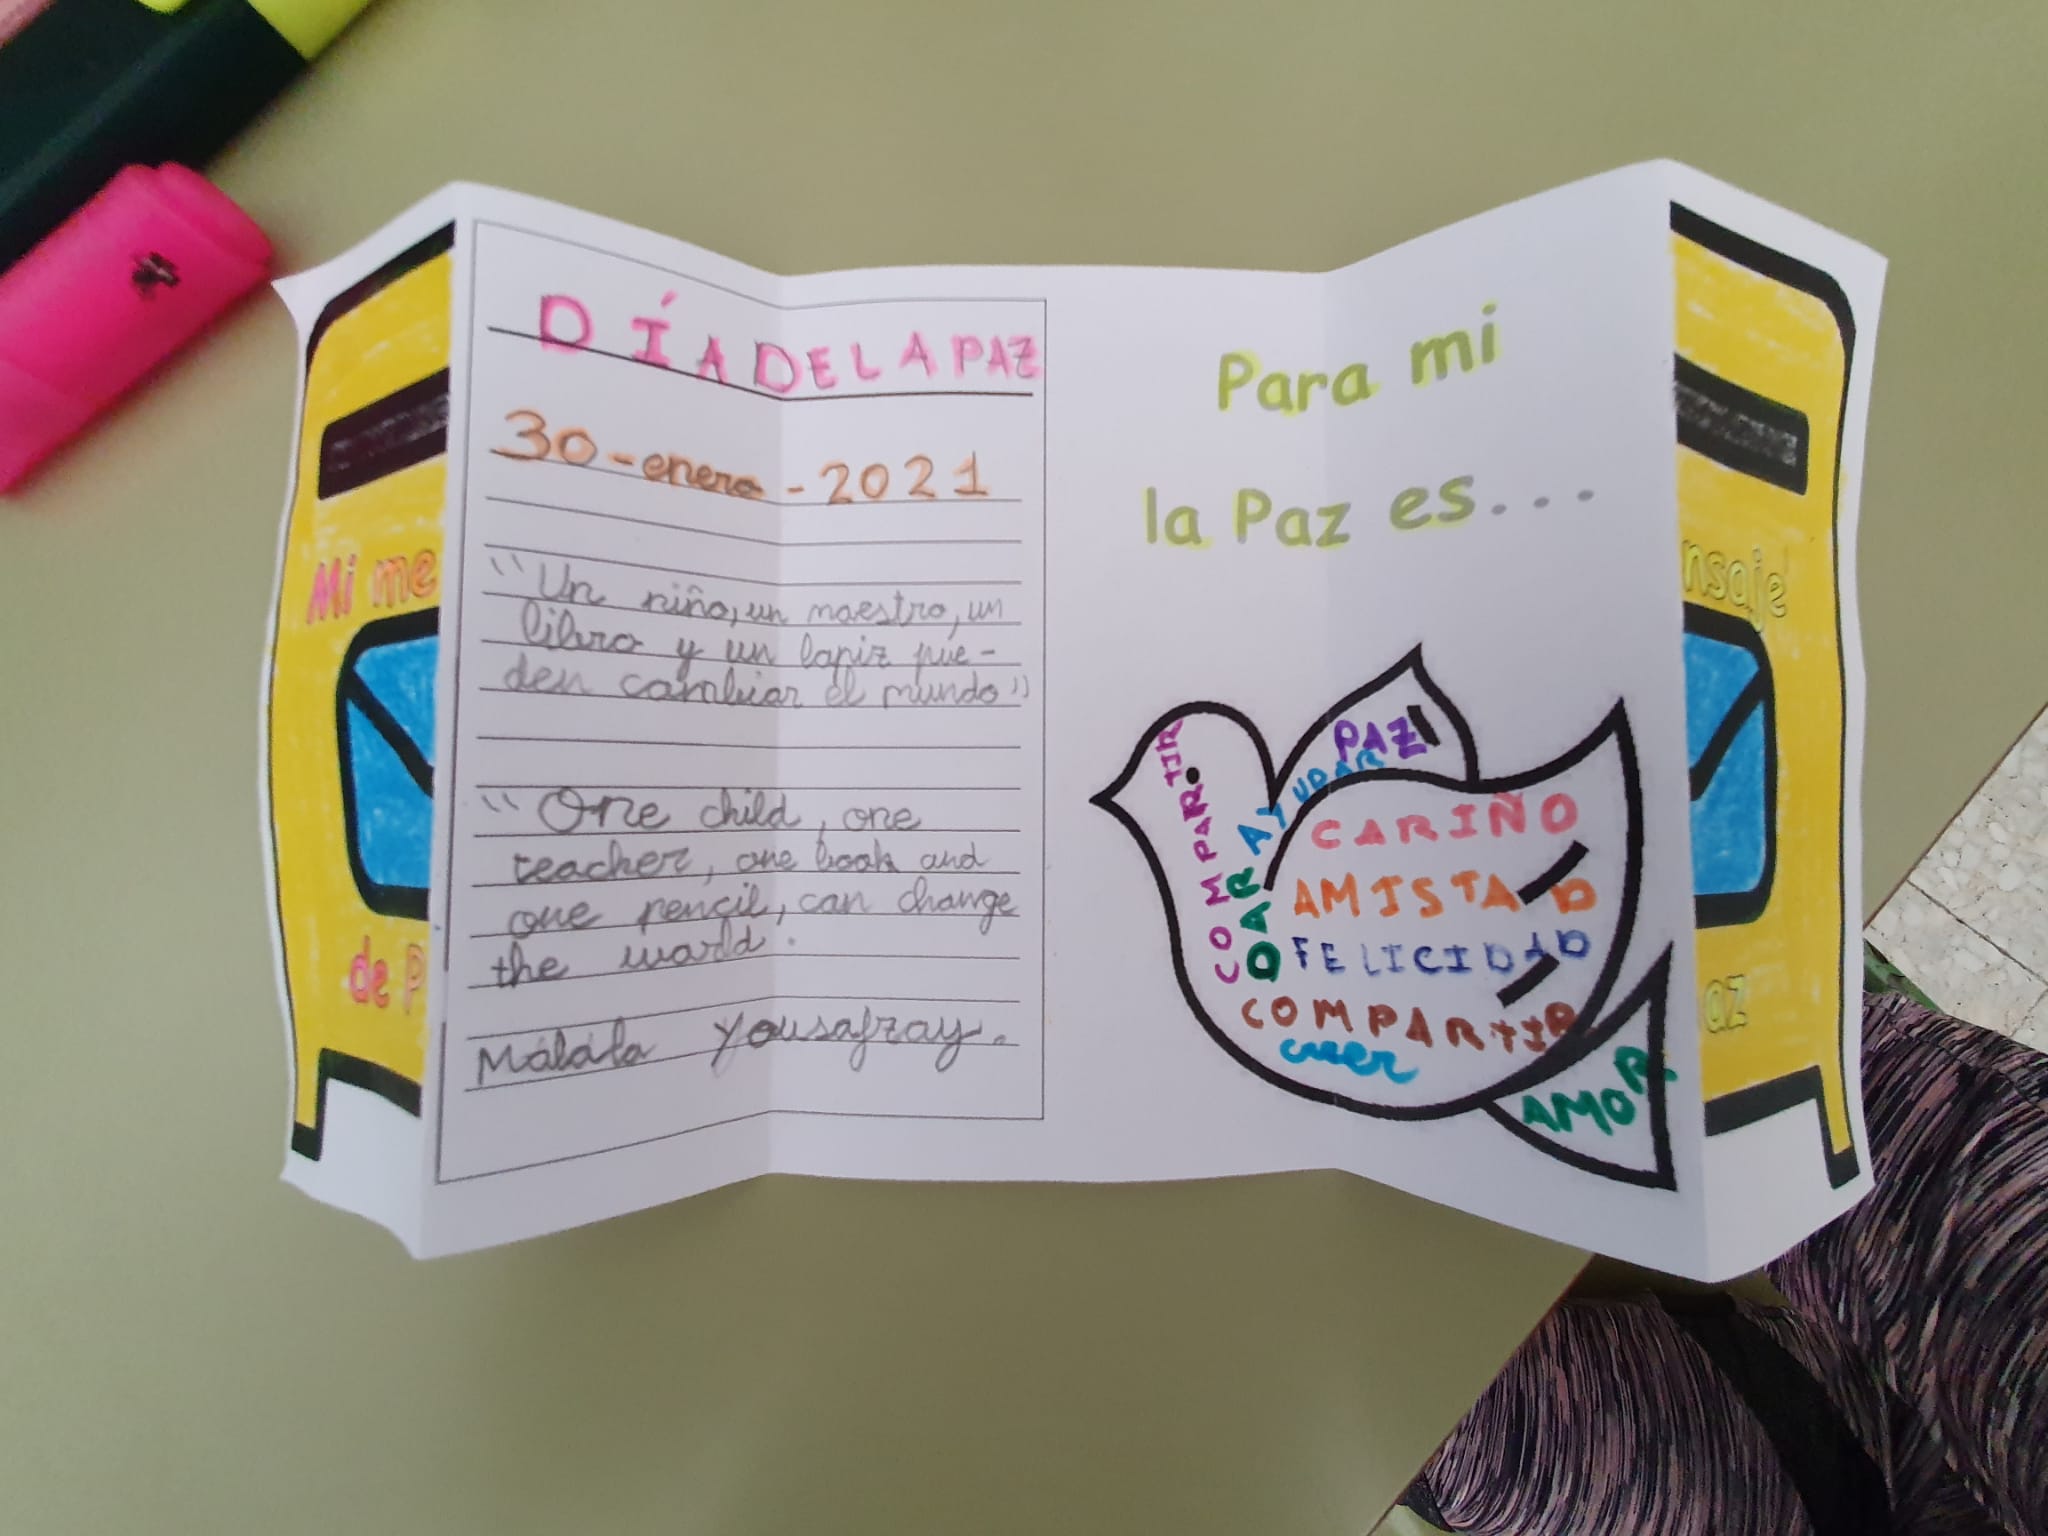 Mi me
de P
DÍA DE LA PAZ
30-enero-2021
"Un niño, un maestro, un
libro y un lapiz pue-
den cambiar el mundo"
"One child, one
teacher, one book and
one pencil, can change
the world.
Malala Yousafzay.
Para mi
la Paz es...
PAZ
AYUDAR
COMPARTIR
DAR
CARIÑO
AMISTAD
FELICIDAD
COMPARTIR
creer
AMOR
nsaje
az